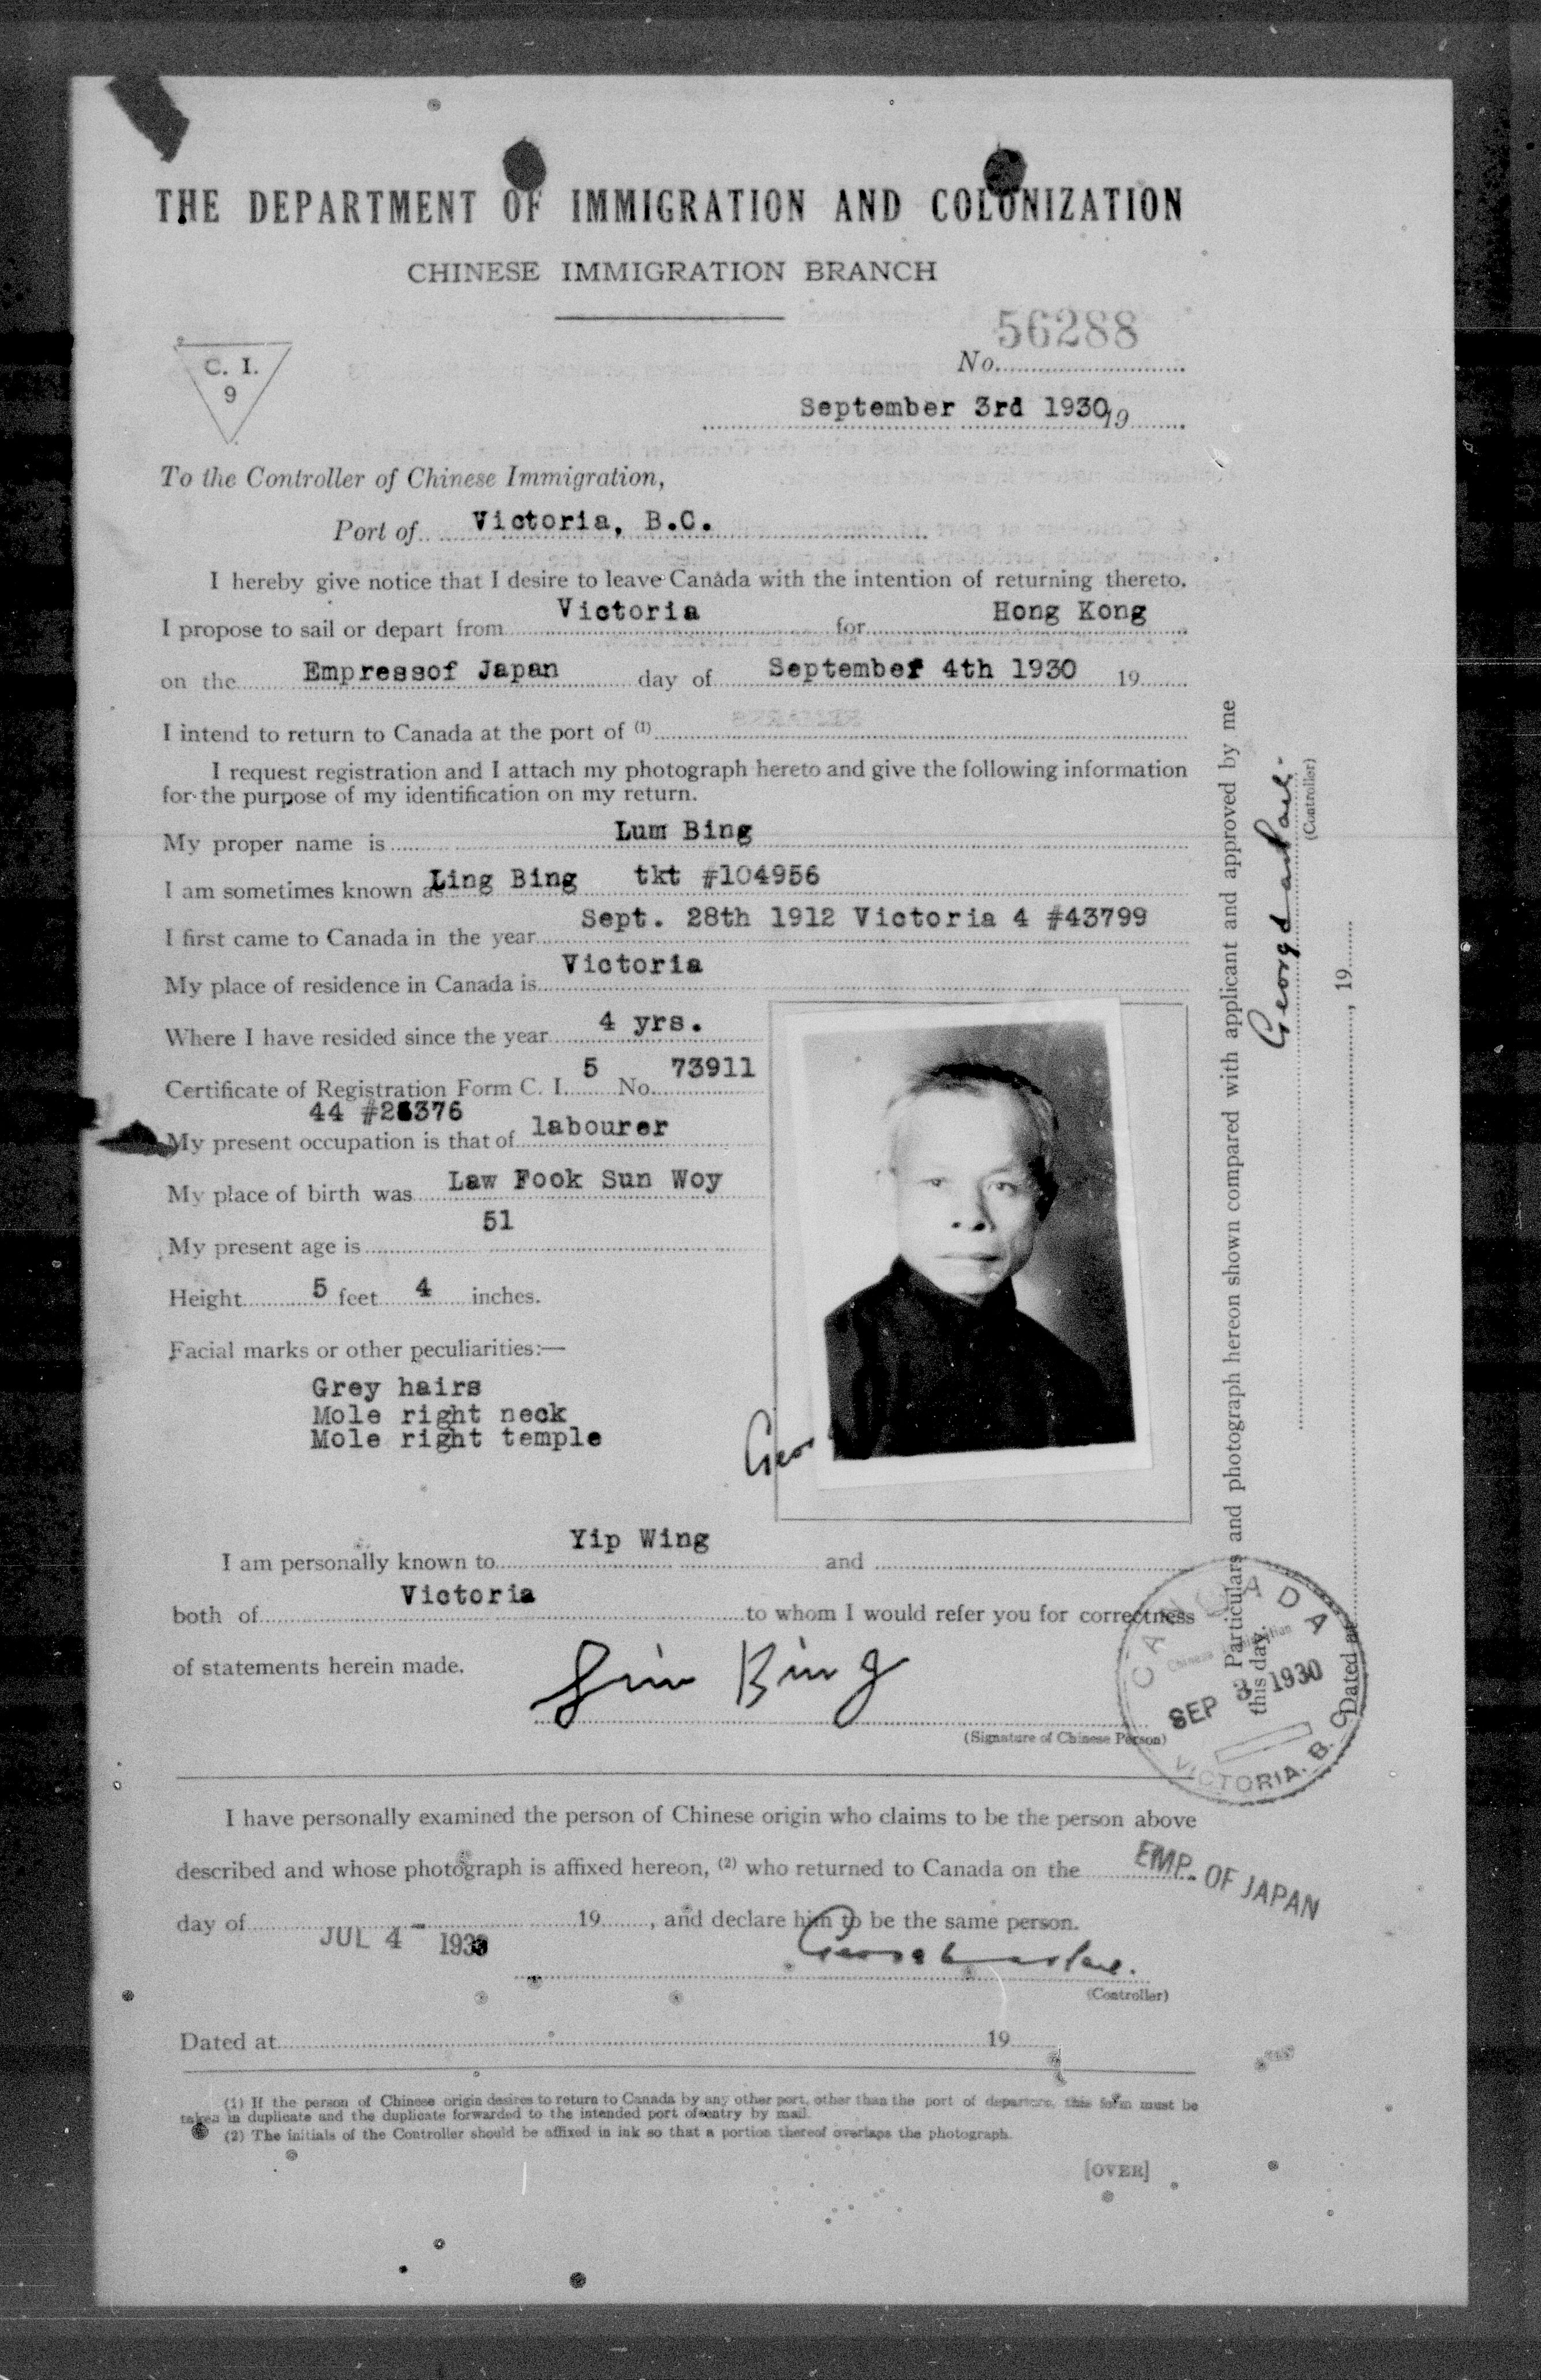 THE DEPARTMENT OF IMMIGRATION AND COLONIZATION
CHINESE IMMIGRATION BRANCH
56288
C. I.
9
No.
September 3rd 1930 19
To the Controller of Chinese Immigration,
Port of Victoria, B.C.
I hereby give notice that I desire to leave Canada with the intention of returning thereto.
I propose to sail or depart from Victoria for Hong Kong
on the Empressof Japan day of September 4th 1930 19
I intend to return to Canada at the port of (1)
I request registration and I attach my photograph hereto and give the following information
for the purpose of my identification on my return.
My proper name is Lum Bing
I am sometimes known as Ling Bing tkt #104956
I first came to Canada in the year Sept. 28th 1912 Victoria 4 #43799
My place of residence in Canada is Victoria
Where I have resided since the year 4 yrs.
Certificate of Registration Form C. I. 5 No. 73911
44
My present occupation is that of labourer
My place of birth was Law Fook Sun Woy
My present age is 51
Height 5 feet 4 inches.
Facial marks or other peculiarities:—
Grey hairs
Mole right neck
Mole right temple
Geor
I am personally known to Yip Wing and
both of Victoria to whom I would refer you for correctness
of statements herein made.
Lim Bing
(Signature of Chinese Person)
I have personally examined the person of Chinese origin who claims to be the person above
described and whose photograph is affixed hereon, (2) who returned to Canada on the EMP. OF JAPAN
day of 19, and declare him to be the same person.
JUL 4 - 193
(Controller)
Dated at 19
(1) If the person of Chinese origin desires to return to Canada by any other port, other than the port of departure, this form must be
taken in duplicate and the duplicate forwarded to the intended port of entry by mail.
(2) The initials of the Controller should be affixed in ink so that a portion thereof overlaps the photograph.
[OVER]
Particulars and photograph hereon shown compared with applicant and approved by me
this day.
George
(Controller)
Dated at , 19
CANADA
Chinese Immigration
SEP 3 1930
VICTORIA. B. C.